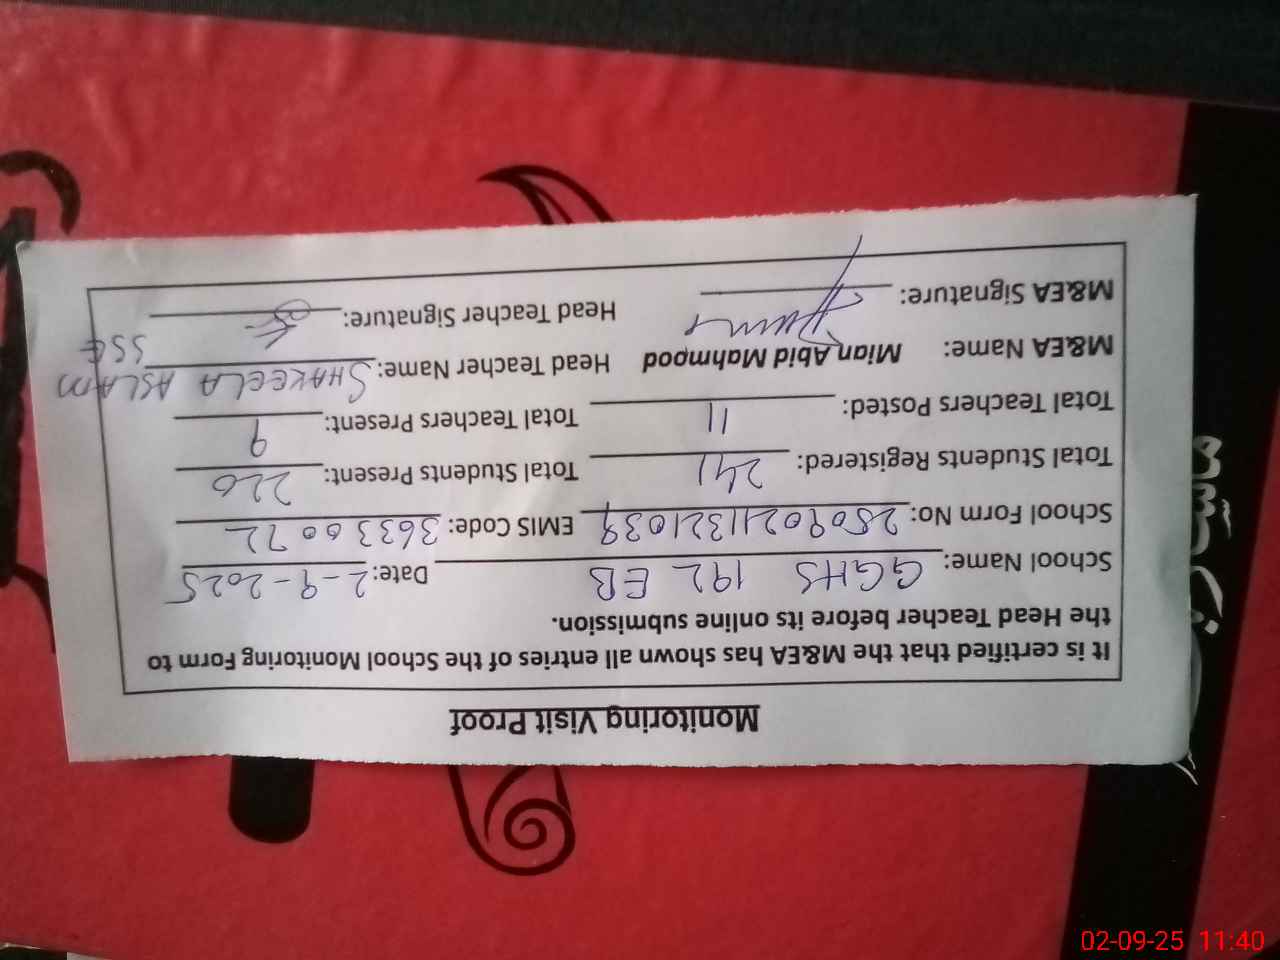 Monitoring Visit Proof
It is certified that the M&EA has shown all entries of the School Monitoring Form to
the Head Teacher before its online submission.
School Name: GGHS 192 EB Date: 2-9-2025
School Form No: 25090211321039 EMIS Code: 36330072
Total Students Registered: 241 Total Students Present: 220
Total Teachers Posted: 11 Total Teachers Present: 9
M&EA Name: Mian Abid Mahmood Head Teacher Name: SHAKEELA ASLAM
SSE
M&EA Signature: Head Teacher Signature:
02-09-25 11:40